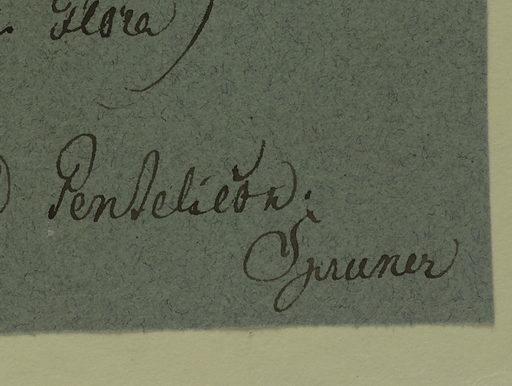 . Flora)
) Pentelicon.
Spruner